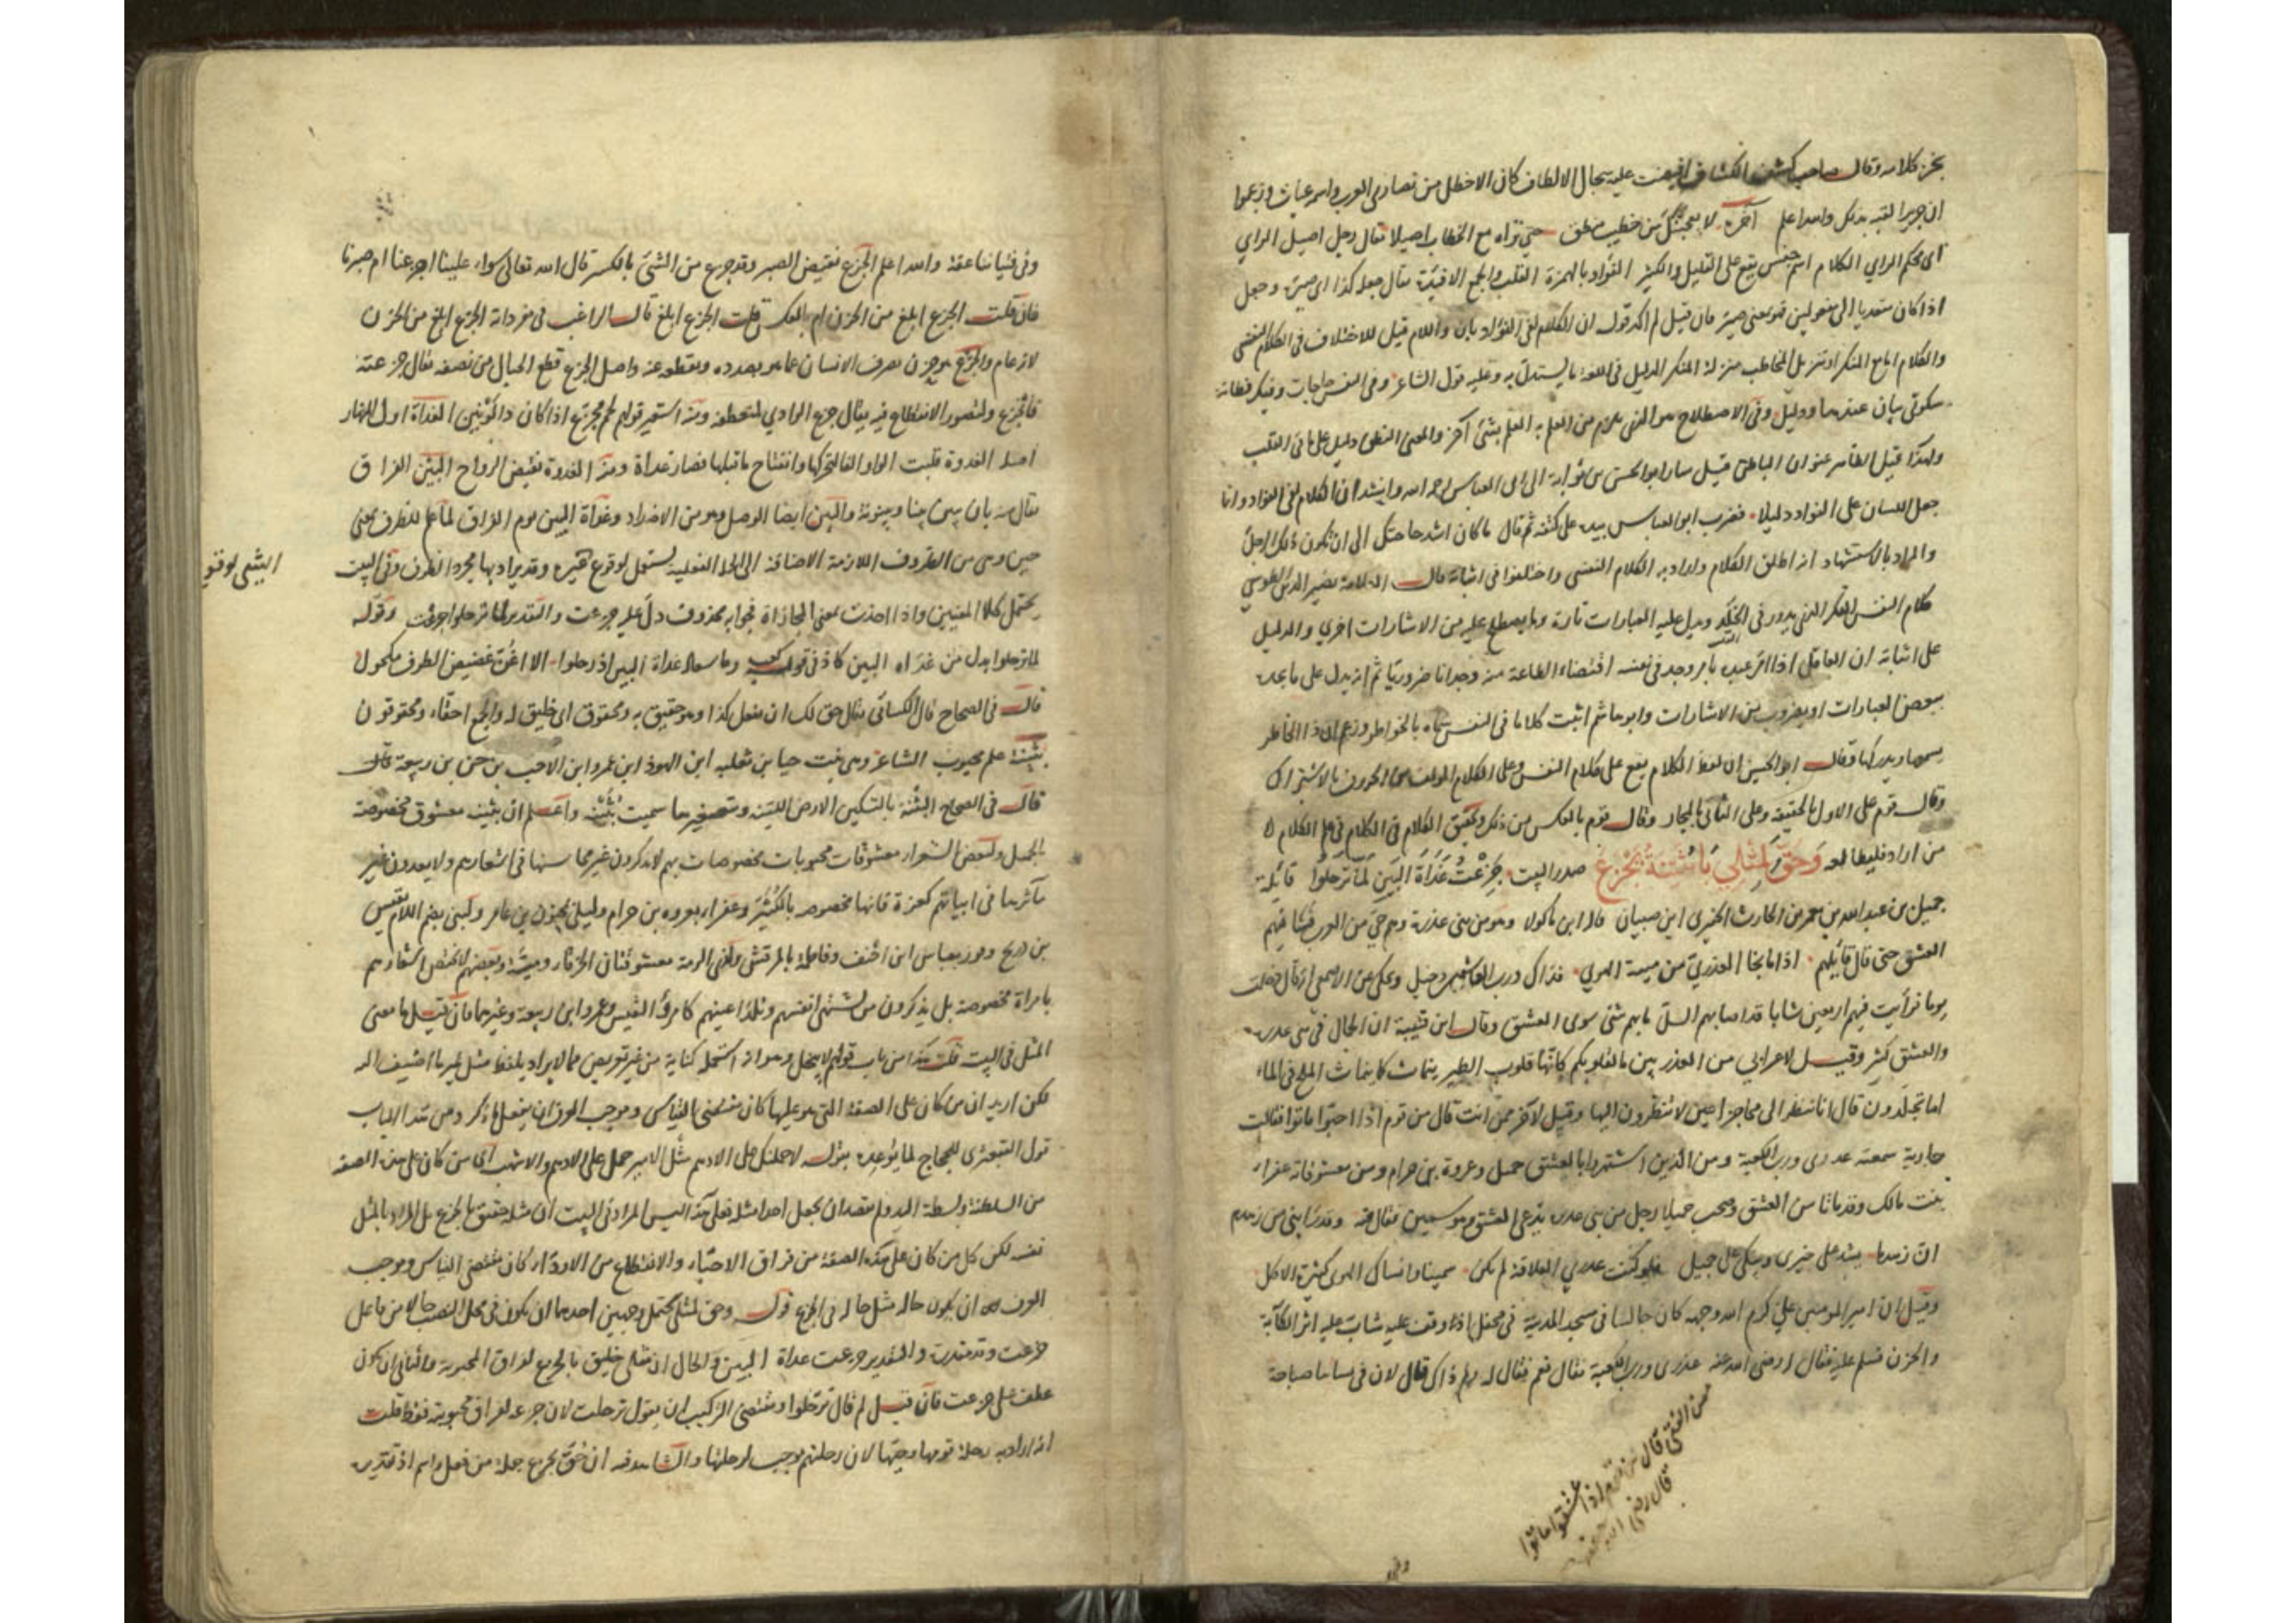 كلامه وقال صاحب كشف الكشاف افيضت عليه سجال الالطاف كان الاخطل من نصارى العرب واسمه غياث وزعموا
ان جريرا لقبه بذلك والله اعلم آخره لا يعجبنك من خطيب خطبة حتى تراه مع الخطاب اصيلا يقال رجل اصيل الراي
اى محكم الراي الكلام اسم جنس يقع على القليل والكثير الفؤاد بالهمزة القلب والجمع الافئدة يقال جعله كذا اى صيره وجعل
اذا كان متعديا الى مفعولين فهو بمعنى صير فان قيل لم اكد قوله ان الكلام لفى الفؤاد بان واللام قيل للاختلاف فى الكلام النفسى
والكلام اما مع المنكر او تنزيل المخاطب منزلة المنكر الدليل فى اللغة ما يستدل به وعليه قول الشاعر وفى النفس حاجات وفيك فطانة
سكوتى بيان عندها ودليل وفى الاصطلاح هو الذى يلزم من العلم به العلم بشئ آخر والمعنى اللفظى دليل على ما فى القلب
ولهذا قيل الظاهر عنوان الباطن قيل سار ابو الحسن بن ثوابة الى ابى العباس احمد الله وانشد ان الكلام لفى الفؤاد وانما
جعل اللسان على الفؤاد دليلا فضرب ابو العباس بيده على كتفه ثم قال ما كان اشد حاجتك الى ان تكون ذلك الرجل
والمراد بالاستشهاد انه اطلق الكلام واراد به الكلام النفسى واختلفوا فى اثباته قال العلامة نصير الدين الطوسي
كلام النفس الفكر الذى يدور فى الخلد ويدل عليه العبارات تارة وما يصطلح عليه من الاشارات اخرى والدليل
على اثباته ان العاقل اذا امر عبده بامر وجد فى نفسه اقتضاء الطاعة منه وجدانا ضروريا ثم انه يدل على ما يجده
ببعض العبارات او بضروب من الاشارات وابو هاشم اثبت كلاما فى النفس سماه بالخواطر وزعم ان ذا الخاطر
يسمعها ويدركها وقال ابو الحسين ان لفظ الكلام يقع على كلام النفس وعلى الكلام المؤلف من الحروف بالاشتراك
وقال قوم على الاول بالحقيقة وعلى الثانى بالمجاز وقال قوم بالعكس من ذلك وتحقيق الكلام فى الكلام فى علم الكلام
من اراد فليطالعه وَحُقَّ لِمِثْلِي يَا بُثَيْنَةُ يَجْزَعُ صدر البيت جَزِعْتُ غَدَاةَ البَيْنِ لَمَّا تَرَحَّلُوا قائله
جميل بن عبد الله بن معمر بن الحارث الخيبرى ابن ضبيان قاله ابن ماكولا وهو من بنى عذرة وهم حي من العرب فشا فيهم
العشق حتى قال قائلهم اذا ما نجا العذري من ميتة الهوى فذاك ورب العاشقين دخيل وحكى عن الاصمعى انه قال دخلت
يوما فرأيت فيهم اربعين شابا قد اصابهم السل ما بهم شئ سوى العشق وقال ابن قتيبة ان الجمال فى بنى عذرة
والعشق كثير وقيل لاعرابى من العذريين ما لقلوبكم كانها قلوب الطير ينماث كما ينماث الملح فى الماء
اما تجلدون قال انا ننظر الى محاجز اعين لا تنظرون اليها وقيل لآخر ممن انت قال من قوم اذا احبوا ماتوا فقالت
جارية سمعته عذرى ورب الكعبة ومن الذين اشتهروا بالعشق جميل وعروة بن حرام ومن معشوقاته عفراء
بنت مالك وقد ماتا من العشق وصحب جميلا رجل من بنى عذره يدعى العشق وهو سمين فقال فيه وقد رابنى من زهدم
ان زهدما يشد على خبزى ويبكى على جميل فلو كنت عذرى العلاقة لم تكن سمينا وانساك الهوى كثرة الاكل
وقيل ان امير المومنين علي كرم الله وجهه كان جالسا فى مسجد المدينة فى محفل اذ وقف عليه شاب عليه اثر الكآبة
والحزن فسلم عليه فقال رضى الله عنه عذرى ورب الكعبة فقال نعم فقال له لم ذاك قال لان فى نسائنا صباحة
من الفتى قال من قوم اذا عشقوا ماتوا
قال رضى الله عنه
وفى
وفى فتياننا عفة والله اعلم الجزع نقيض الصبر وقد جزع من الشئ بالكسر قال الله تعالى سواء علينا اجزعنا ام صبرنا
فان قلت الجزع ابلغ من الحزن ام بالعكس قلت الجزع ابلغ قال الراغب فى مفرداته الجزع ابلغ من الحزن
لانه عام والجزع هو حزن يصرف الانسان عما هو بصدده ويقطعه عنه واصل الجزع قطع الحبال من نصفه يقال جزعته
فانجزع ولتصور الانقطاع فيه يقال جزع الوادي لمنحطفه ومنه استعير قولهم لحم مجزع اذا كان ذا لونين الغداة اول النهار
اصله الغدوة قلبت الواو الفا لتحركها وانفتاح ما قبلها فصار غداة ومنه الغدوة نقيض الرواح البين الفراق
يقال منه بان يبين بينا وبينونة والبين ايضا الوصل وهو من الاضداد وغداة البين يوم الفراق لما علم للظرف بمعنى
حين وهى من الظروف اللازمة الاضافة الى الجملة الفعلية يستعمل لوقوع غيره وقد يراد بها مجرد الظرف وفى البيت
الشئ لوقوع
يحتمل كلا المعنيين واذا اخذت بمعنى المجازاة فجوابه محذوف دل عليه جزعت والتقدير لما ترحلوا جزعت وقوله
لما ترحلوا بدل من غداة البين كاذ فى قول كعب وما سعاد غداة البين اذ رحلوا الا اغن غضيض الطرف مكحول
قال فى الصحاح قال الكسائى يقال حق لك ان تفعل كذا وهو حقيق به ومحقوق اى خليق له والجمع احقاء ومحقوقون
بثينة علم محبوب الشاعر وهى بنت حيا بن ثعلبه ابن الهوذ ابن عمرو ابن الاحب بن حن بن ربيعة
قال فى الصحاح البثنة بالتسكين الارض اللينة وبتصغيرها سميت بثينة واعلم ان بثينة معشوق مخصوصة
لجميل ولبعض الشعراء معشوقات محبوبات مخصوصات بهم لا يذكرون غير محاسنها فى اشعارهم ولا يعدون غير
مآثرها فى ابياتهم كعزة فانها مخصوصه بالكُثَيّر وعفراء بعروه بن حرام وليلى بمجنون بن عامر ولبنى بضم اللام بقيس
بن ذريح وفوز بعباس ابن احنف وفاطمة بالمرقش ولذى الرمة معشوقتان الخرقاء وميّة وبعضهم لا يختص اشعارهم
بامراة مخصوصة بل يذكرون من تشتهى انفسهم وتلذ اعينهم كامرؤ القيس وعمرو ابن ربيعة وغيرهما فان قيل ما معنى
المثل فى البيت قلت هذا من باب قولهم مثلك لا يبخل وهو انه استعمله كناية من غير تعريض مما لا يراد بلفظ مثل غير ما اضيف اليه
لكن اريد ان من كان على الصفة التى هو عليها كان مقتضى القياس وموجب العرف ان يفعل ما ذكر ومن هذا الباب
قول القبعثرى للحجاج لما توعده بقوله لاحملنك على الادهم مثل الامير حمل على الادهم والاشهب اى من كان على هذه الصفة
من السلطنة وبسطة اليد ولم يقصد ان يجعل احدا مثله فعلى هذا ليس المراد فى البيت ان مثله حقيق بالجزع بل المراد بالمثل
نفسه لكن كل من كان على هذه الصفة من فراق الاحباء والانقطاع من الاوداء كان مقتضى القياس وموجب
العرف ان يكون حاله مثل حاله فى الجزع قوله وحق لمثلى يحتمل وجهين احدهما ان يكون فى محل النصب حالا من فاعل
جزعت وقد مقدرة والتقدير جزعت غداة البين والحال ان مثلى خليق بالجزع لفراق المحبوبة والثانى ان يكون
عطف على جزعت فان قيل لم قال ترحلوا ومقتضى التركيب ان يقول ترحلت لان جزعه لفراق محبوبته فقط قلت
انه اراد به رحلة قومها وحيها لان رحلتهم يوجب لرحلتها والشاهد فيه ان حُقّ يجزع جملة من فعل واسم اذ تقديره